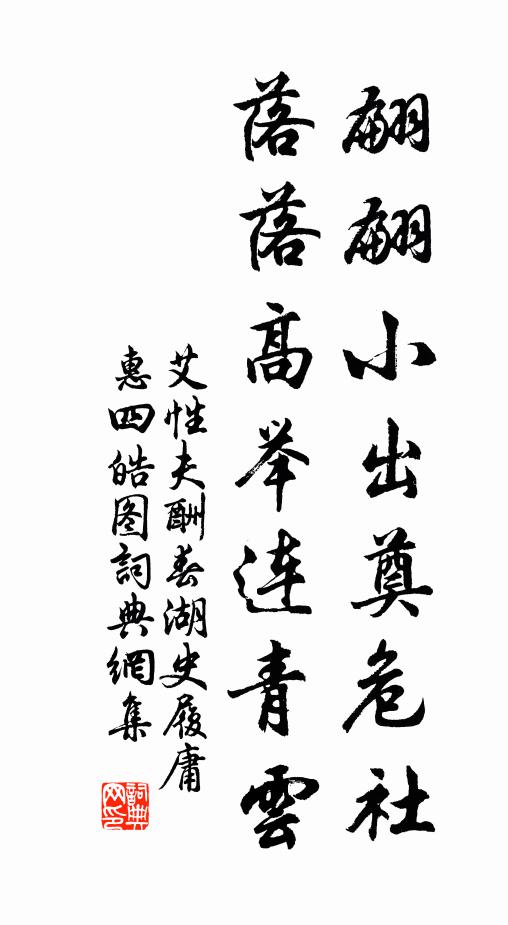 翩翩小出奠危社
落落高举连青雲
艾性夫酬春湖史履庸
惠四皓图詞典網集
詞典网印